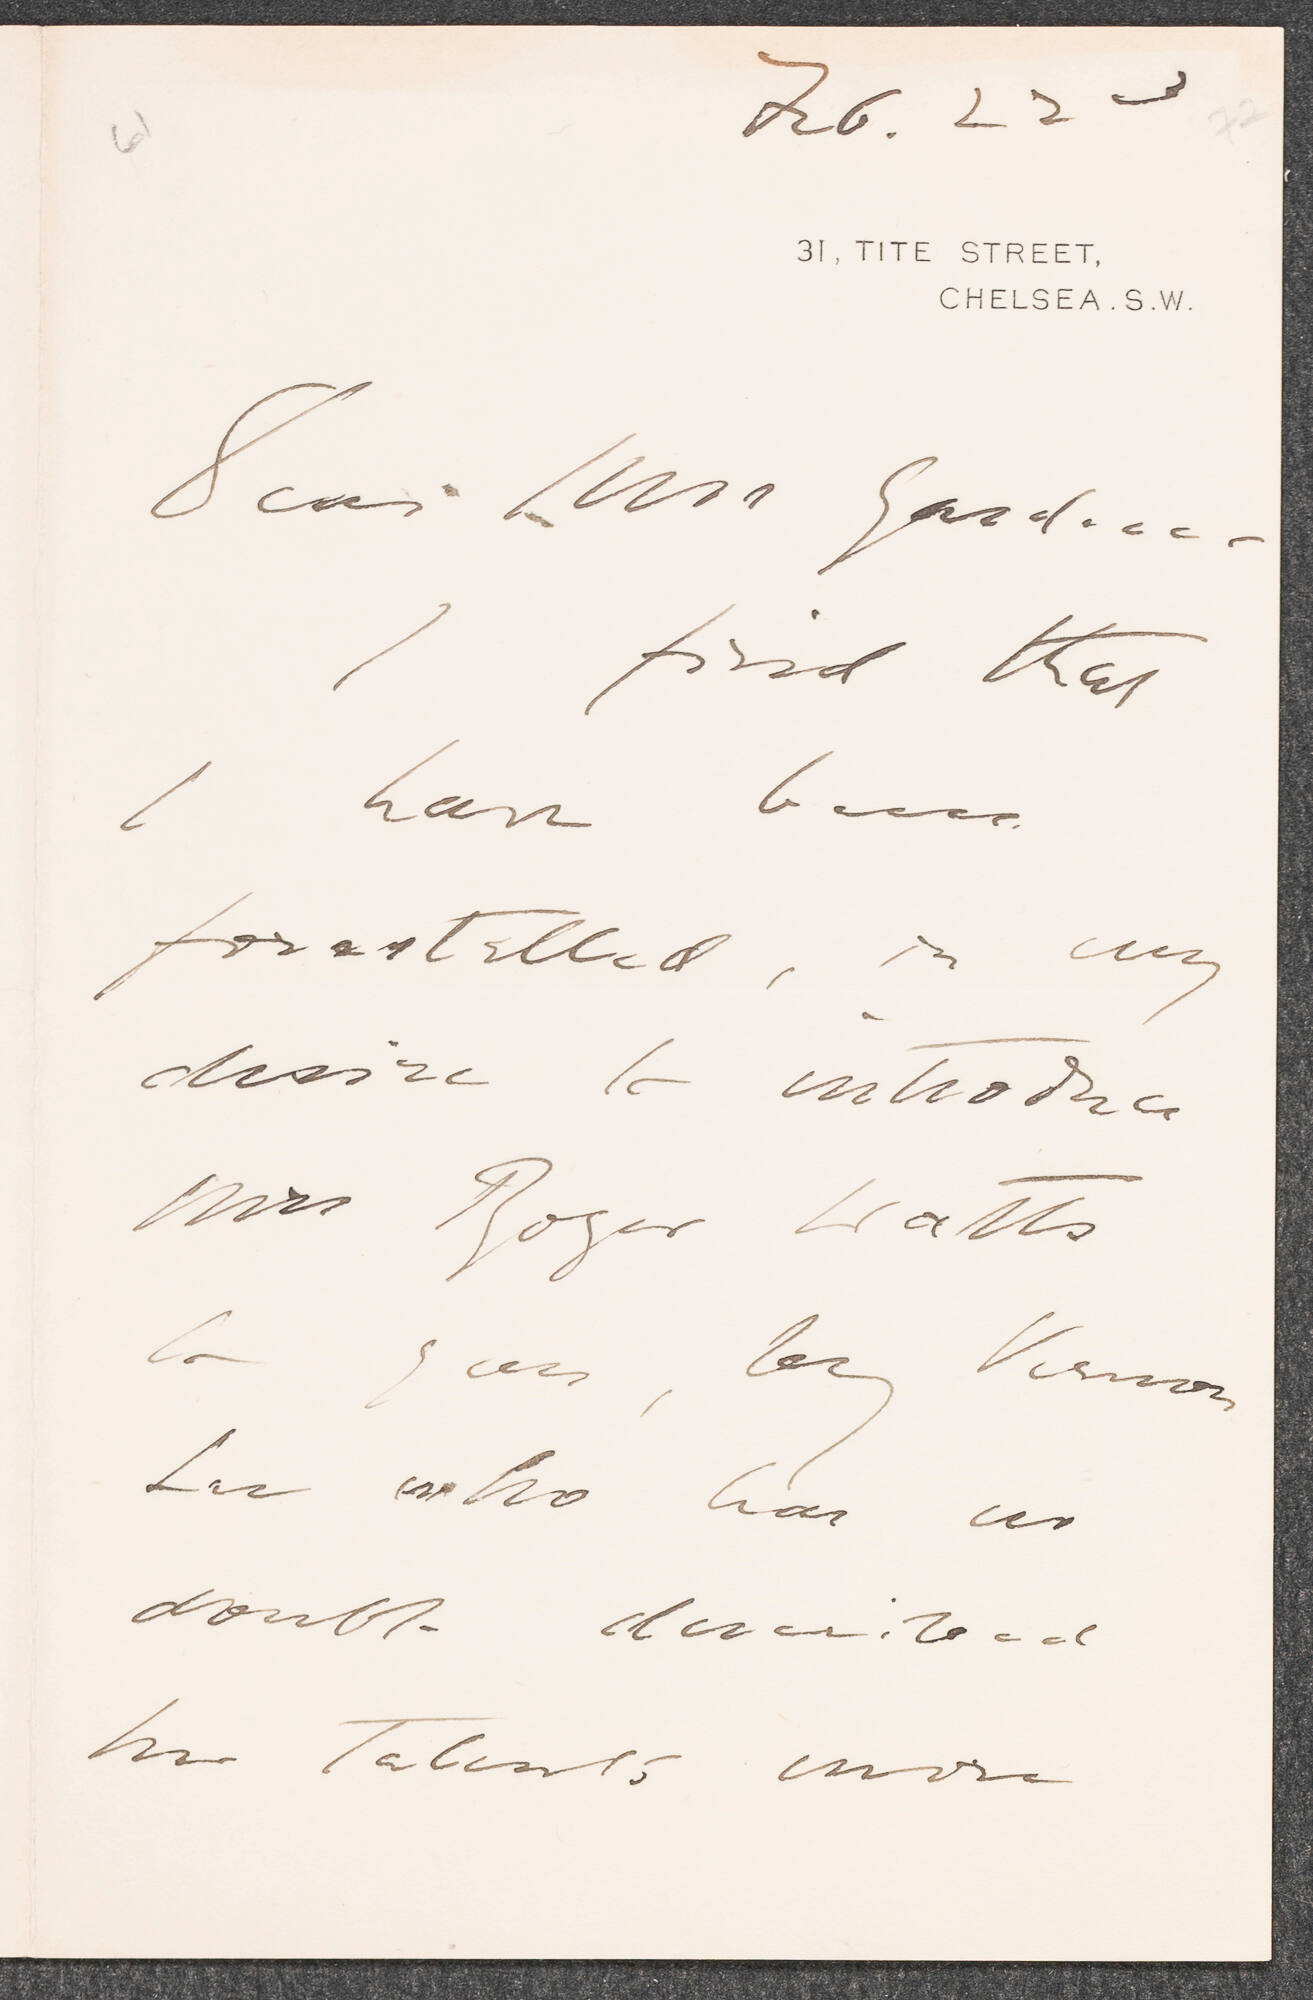 Feb. 22d
72
6
31, TITE STREET,
CHELSEA. S.W.
Dear Mrs Gardner
I find that
I have been
forestalled, in my
desire to introduce
Mrs Roger Watts
to you, by Vernon
Lee who has no
doubt described
her talents more